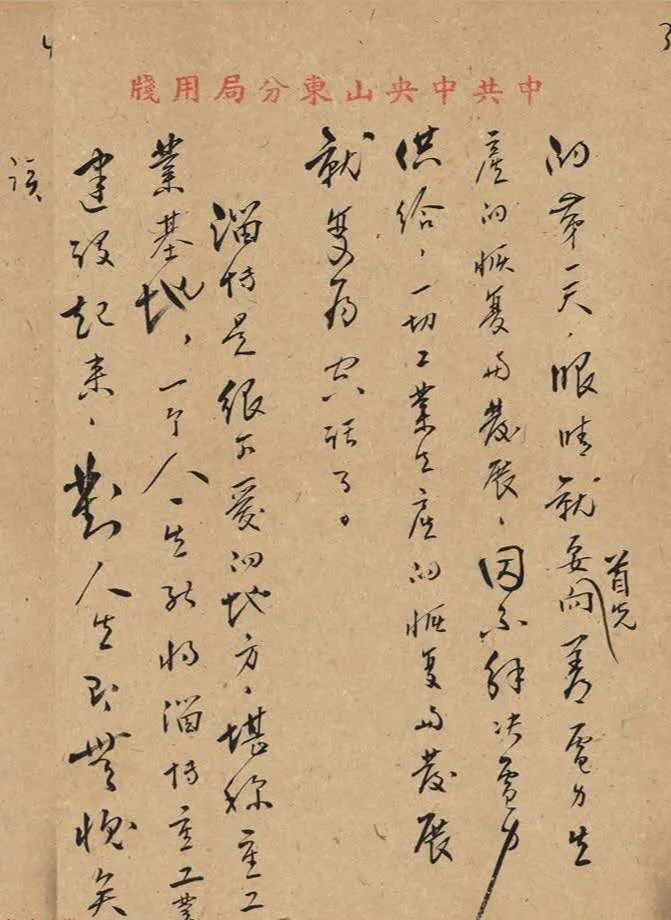 3
4
中共中央山東分局用牋
的第一天，眼睛就要首先向着電力生
產的恢复与發展，因不解决電力
供給，一切工業生產的恢复与發展
就变为空話了。
淄博是很可爱的地方，堪称重工
業基地，一个人一生能将淄博重工業
建設起来，對人生即無愧矣